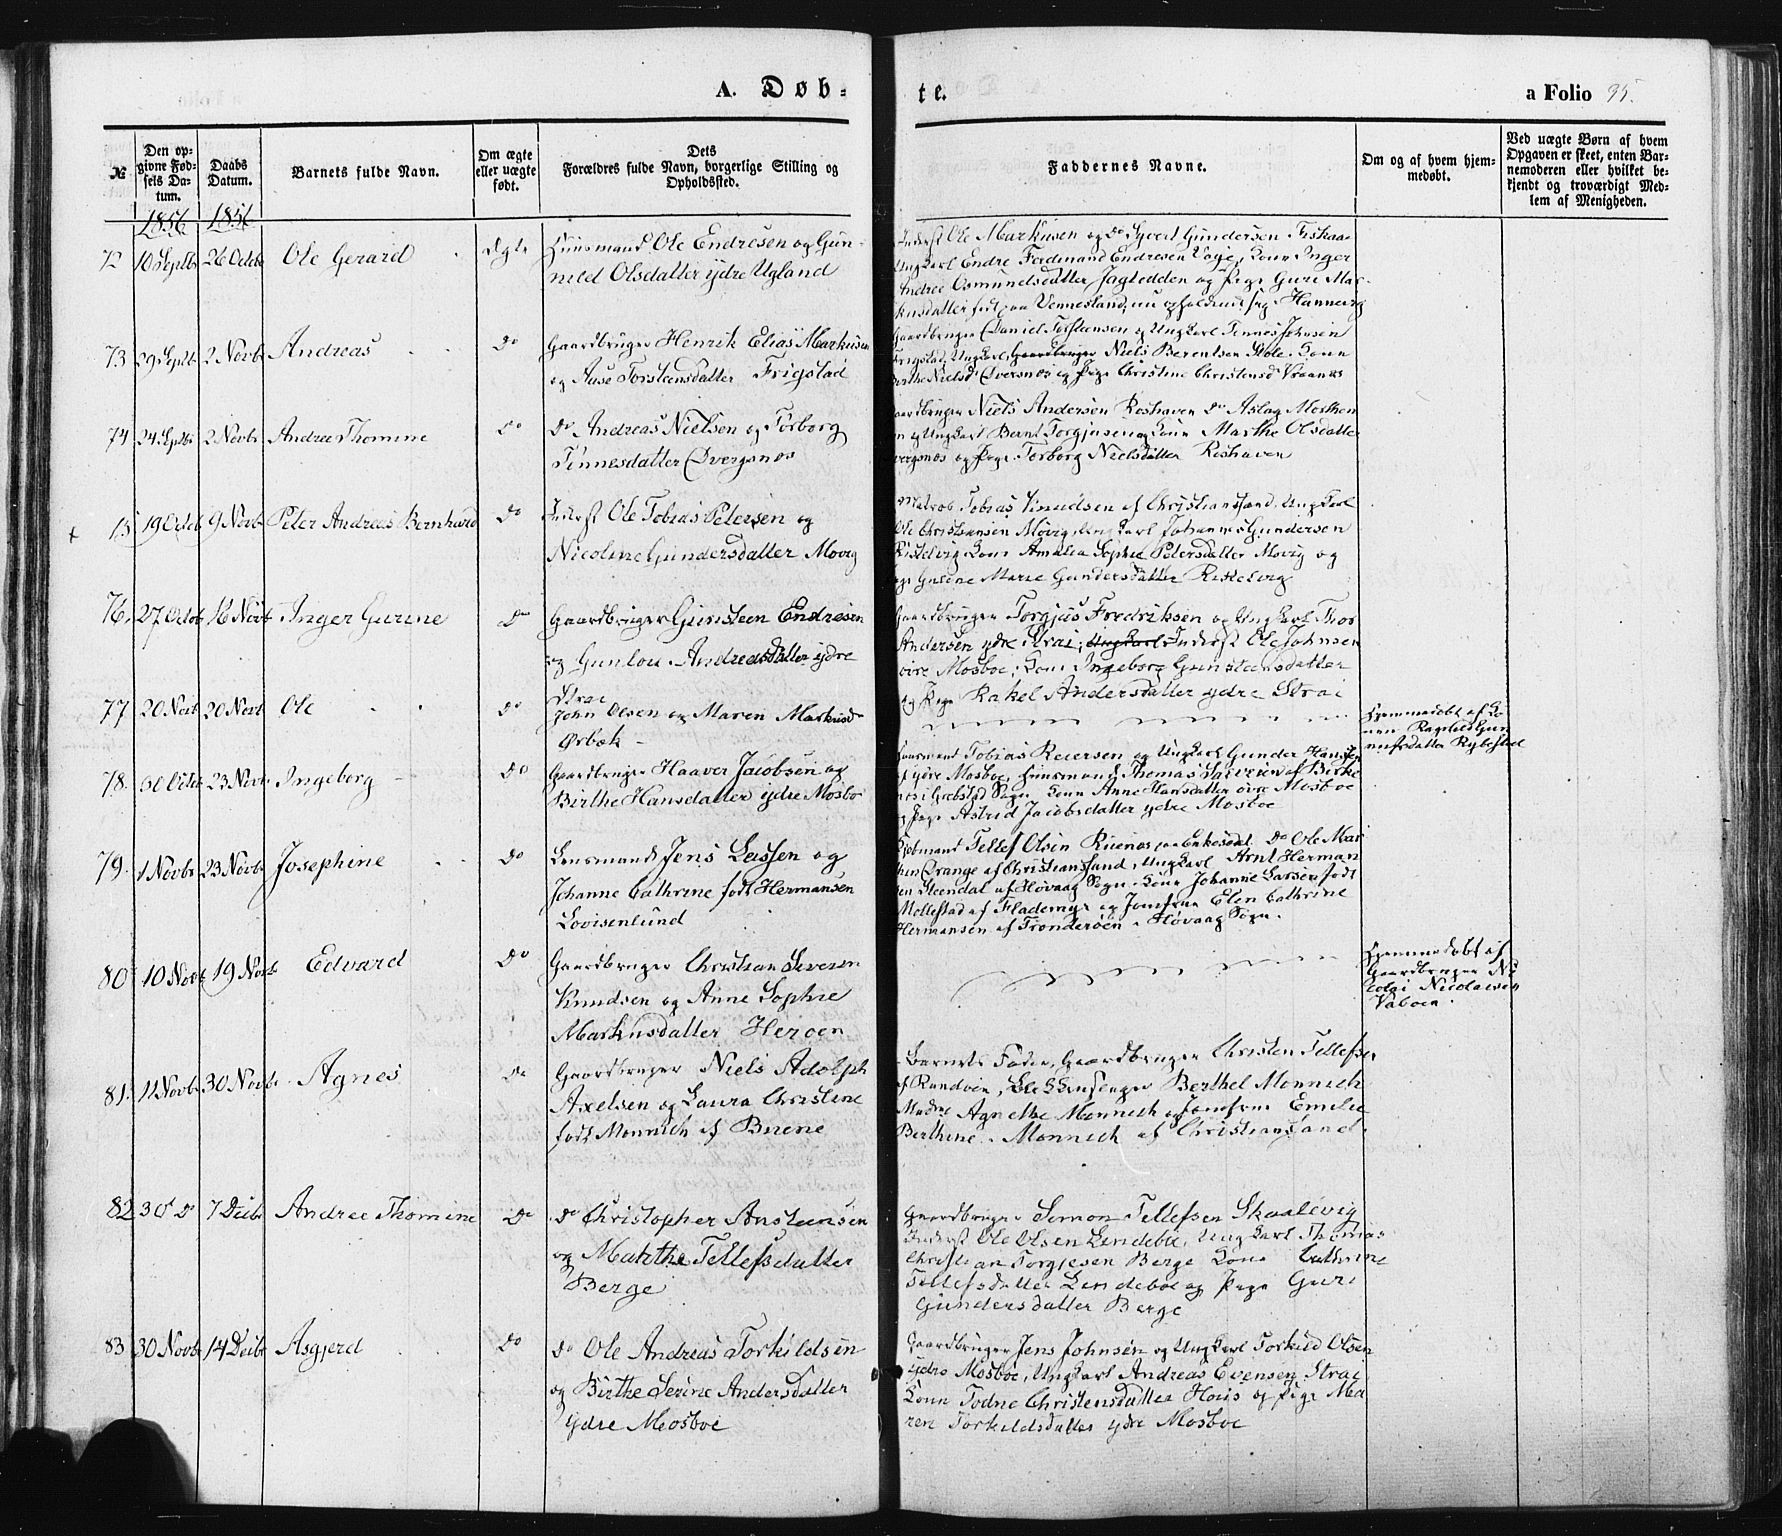 A. Døb-
te.
a Folio 95.
№
Den op-
givne Fød-
sels Da-
tum.
Daabs
Datum.
Barnets fulde Navn.
Om ægte
eller uægte
født.
Dets
Forældres fulde Navn, borgerlige Stilling og
Opholdssted.
Faddernes Navne.
Om og af hvem hjem-
medøbt.
Ved uægte Børn af hvem
Opgaven er skeet, enten Bar-
nemoderen eller hvilket be-
kjendt og troværdigt Med-
lem af Menigheden.
1856 1856
72 10 Septbr 26 Octbr Ole Gerard Ægte
Huusmand Ole Endresen og Gun-
nild Olsdatter ydre Ugland
Inderst Ole Markusen og Do Syvert Gundersen Fiskaa
Ungkarl Endre Ferdinand Endresen Vage, Kone Inger
Andrea Osmundsdatter Jagtedden og Pige Guri Mar-
kusdatter født paa Vennesland, nu opholdende sig i Hannevig
73 29 Septbr 2 Novbr Andreas Do
Gaardbruger Henrik Elias Markusen
og Aase Torsteensdatter Frigstad
Gaardbruger Daniel Torsteensen og Ungkarl Tønnes Johnsen
Frigstad, Ungkarl Gaardbruger Niels Berentsen Stole, Kone
Birthe Nielsd Qversnos og Pige Christine Christensd Vraanes
74 24 Septbr 2 Novbr Andrea Thomine Do
Do Andreas Nielsen og Torborg
Tønnesdatter Qvergsnos
Gaardbruger Niels Andersen Roshaven Do Aslag Mosthen
og Ungkarl Bernt Torgjusen og Kone Marthe Olsdatter
Qvergsnos og Pige Torborg Nielsdatter Roshaven
75 19 Octbr 9 Novbr Peter Andreas Bernhard Do
Inderst Ole Tobias Petersen og
Nicoline Gundersdatter Møvig
Matros Tobias Knudsen af Christianssand, Ungkarl
Ole Christiansen Møvig, Ungkarl Johannes Gundersen
Kistelvig Kone Amalia Sophie Petersdatter Møvig og
Pige Gusene Marie Gundersdatter Kistelvig
76. 27 Octob 16 Novb Inger Gurine Do
Gaardbruger Gunsteen Endresen
og Gunlou Andreasdatter ydre
Strai
Gaardbruger Torgjus Fredriksen og Ungkarl Thor
Andersen ydre Strai, Ungkarl Inderst Ole Johnsen
øvre Mosboe; Kone Ingeborg Gunsteensdatter
og Pige Rakel Andersdatter ydre Strai
77 20 Novb 20 Novb Ole Do
John Olsen og Maren Markusd
Ørbæk
Hjemmedøbt af Ko-
nen Ragnhild Gun-
nufsdatter Rybestad
78. 30 Octbr 23 Novbr Ingeborg Do
Gaardbruger Haaver Jacobsen og
Birthe Hansdatter ydre Mosbo
Huusmand Tobias Reiersen og Ungkarl Gunder Hansen
af ydre Mosboe, Huusmand Thomas Salvesen af Birke
nes i Grebstad Sogn Kone Anne Hansdatter øvre Mosboe
og Pige Astrid Jacobsdatter ydre Mosboe
79. 1 Novbr 23 Novbr Josephine Do
Lensmand Jens Lassen og
Johanne Cathrine født Hermansen
Lovisenlund
Tellef Olsen Ruenos paa Do Ole Mar
Drange af Christianssand, Ungkarl Arnt Herman
sen Steendal af Høvaag Sogn, Kone Johanne Larsen født
Mollestad af Flademyr og Jomfrue Elen Cathrine
Hermansen af Trønderøen i Høvaag Sogn.
80 10 Novbr 19 Novb Edvard Do
Gaardbruger Christian Severin
Knudsen og Anne Sophie
Markusdatter Herøen
Hjemmedøbt af
Gaardbruger Ni-
colai Nicolaisen
Vaboen.
81. 11 Novbr 30 Novbr Agnes Do
Gaardbruger Niels Adolph
Axelsen og Laura Christine
født Monnich af Buene
Barnets Fader, Gaardbruger Christen Tellefsen
af Randøen, Berthel Monnich
Madme Agnethe Monnich og Jomfrue Emilie
Berthine Monnich af Christianssand.
82 30 Do 7 Decbr Andrea Thomine Do
Do Christopher Anstensen
og Marthe Tellefsdatter
Berge
Gaardbruger Simon Tellefsen Skaalevig
Inderst Ole Olsen Lindeboe, Ungkarl Thomas
Christian Torgjesen Berge Kone Cathrine
Tellefsdatter Lindeboe og Pige Guri
Gundersdatter Berge
83 30 Novbr 14 Decbr Asgjerd Do
Do Ole Andreas Torkildsen
og Birthe Serine Andersdatter
ydre Mosboe
Gaardbruger Jens Johnsen og Ungkarl Torkild Olsen
ydre Mosboe, Ungkarl Andreas Evensen Strai
Kone Todne Christensdatter Houis og Pige Ma
ren Torkildsdatter ydre Mosboe